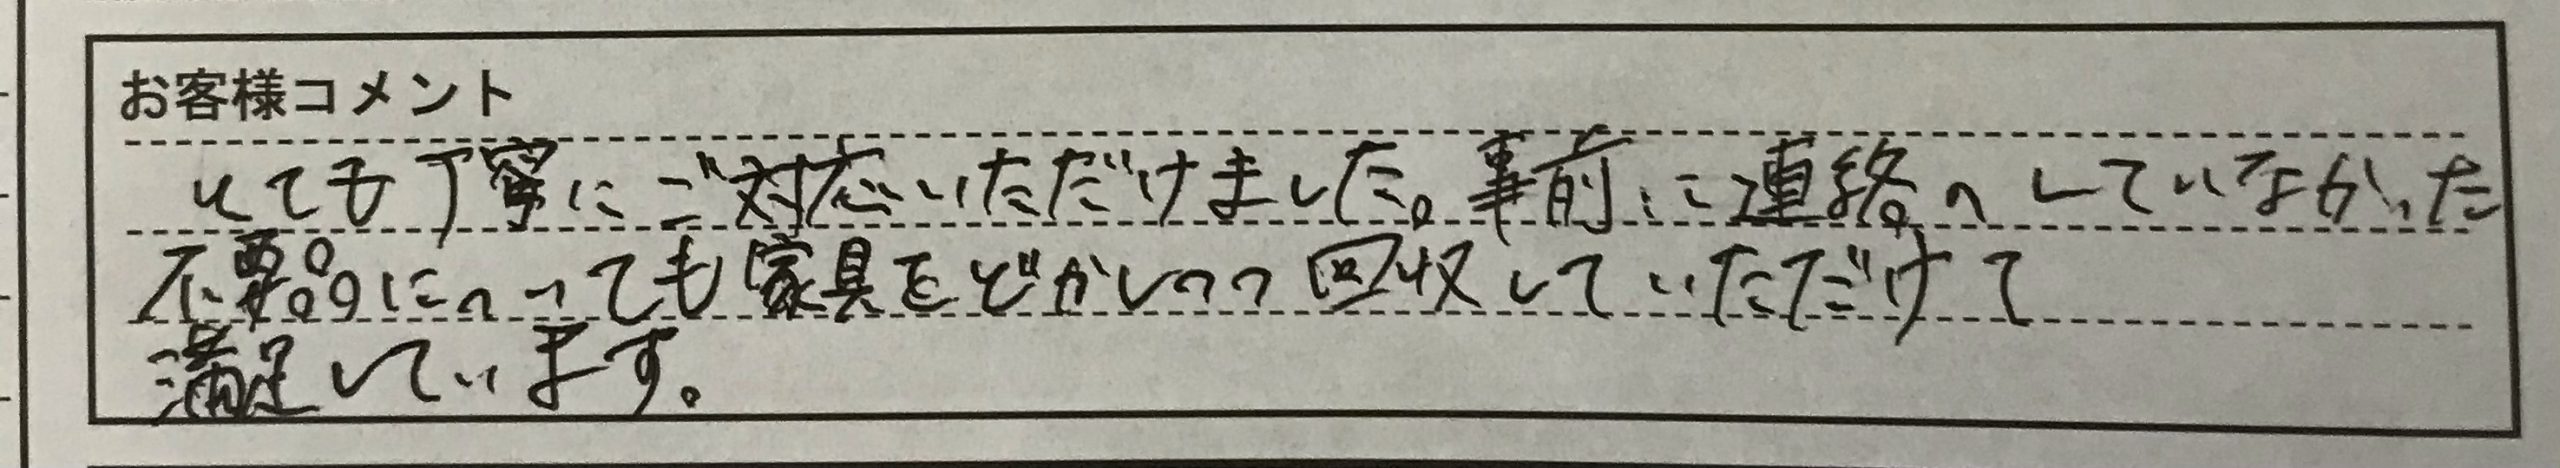 お客様コメント
とても丁寧にご対応いただけました。事前に連絡のしていなかった
不要品にへっても家具をどかしつつ回収していただけて
満足しています。